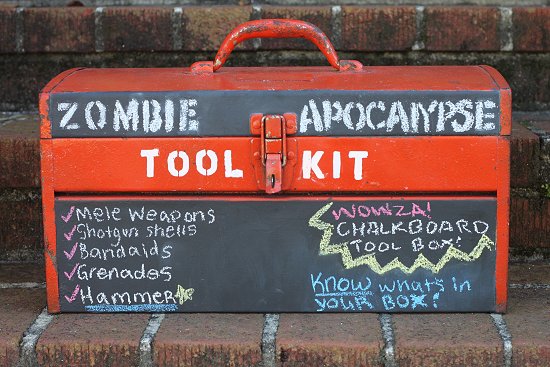 ZOMBIE APOCALYPSE
TOOL KIT
Mele Weapons
Shotgun shells
Bandaids
Grenades
Hammer
WOWZA!
CHALKBOARD
TOOL BOX!
Know what's in
your Box!